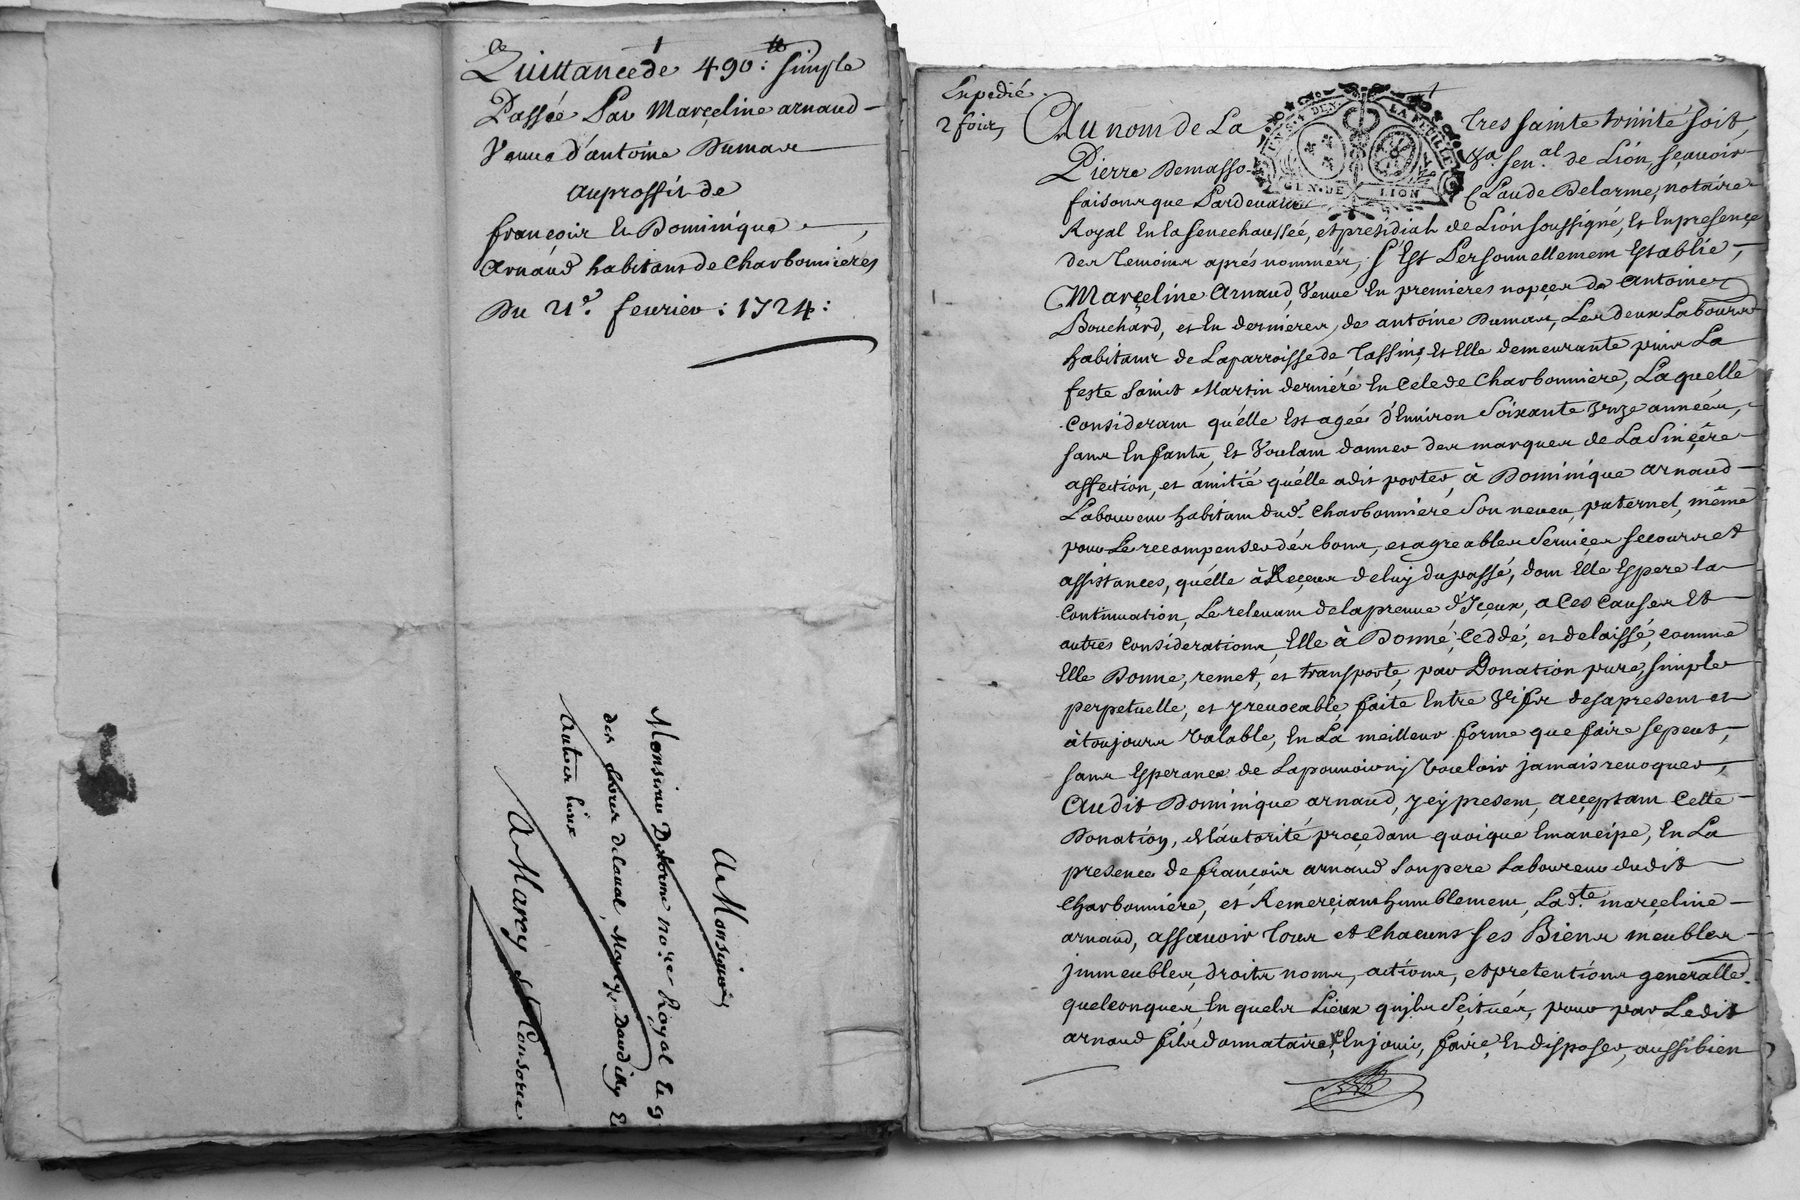 Quittance de 490ᵗᵗ: simple
Passée Par Marçeline arnaud
Veuve d'antoine Dumas
auproffit de
françois Et Dominique
Arnaud habitans de Charbonnieres
Du 21ᵉ. feurier: 1724:
A Monsieur
Monsieur Delorme no.re Royal Et g
des terres delaual, Marcy, Dardilly Et
autres lieux
A Marcy Et Consorce
Expedié
2 fois
Au nom de La Tres sainte trinité soit,
Pierre Demasso sen.al de Lion, sçauoir
faisons que Pardeuant Claude Delorme, notaire
Royal En la senechaussée, et presidial de Lion soussigné, Et En presençe
des Temoins aprés nommés, s'Est Personnellement Establie,
Marçeline Arnaud, Veuue En premieres nopçes de Antoine
Bouchard, et En dernieres, de antoine Dumas, Les deux Laboureurs
habitans de Laparroisse de Tassins, Et Elle demeurante puis La
feste Saint Martin derniere En Cele de Charbonniere, Laquelle
Considerant qu'elle Est agée d'Enuiron Soixante Onze années,
sans Enfants, Et Voulant donner des marques de La Sinçêre
affection, et amitié qu'elle a dit porter, à Dominique arnaud
Laboureur habitant dud. Charbonniere Son neueu, paternel, même
pour Le recompenser des bons, et agreables Seruiçes secours et
assistances, qu'elle à Reçeus de luy du passé, dont Elle Espere la
Continuation, Le releuant de la preuue d'Içeux, a Ces Causes Et
autres Considerations, Elle à Donné, Ceddé, et delaissé, comme
Elle Donne, remet, et transporte, par Donation pure, simple
perpetuelle, et yreuocable, faite Entre Vifs desapresent et
àtoujours Valable, En La meilleur forme que faire se peut,
sans Esperance de Lapouuoir ny Vouloir jamais reuoquer,
Audit Dominique arnaud, ycy present, açceptant Cette
Donation, de l'autorité proçedant quoique Emancipe, En La
presence de françois arnaud Son pere Laboureur dudit
Charbonniére, et Remerçiant humblement, La d.te marçeline
arnaud, assauoir Tous et Chacuns Ses Biens meubles
jmmeubles, droits noms, actions, et pretentions generalle
quelconques, En quels Lieux qu'ils Soitués, pour par Ledit
arnaud fils donnataire, En jouir, faire, Et disposer, aussi bien